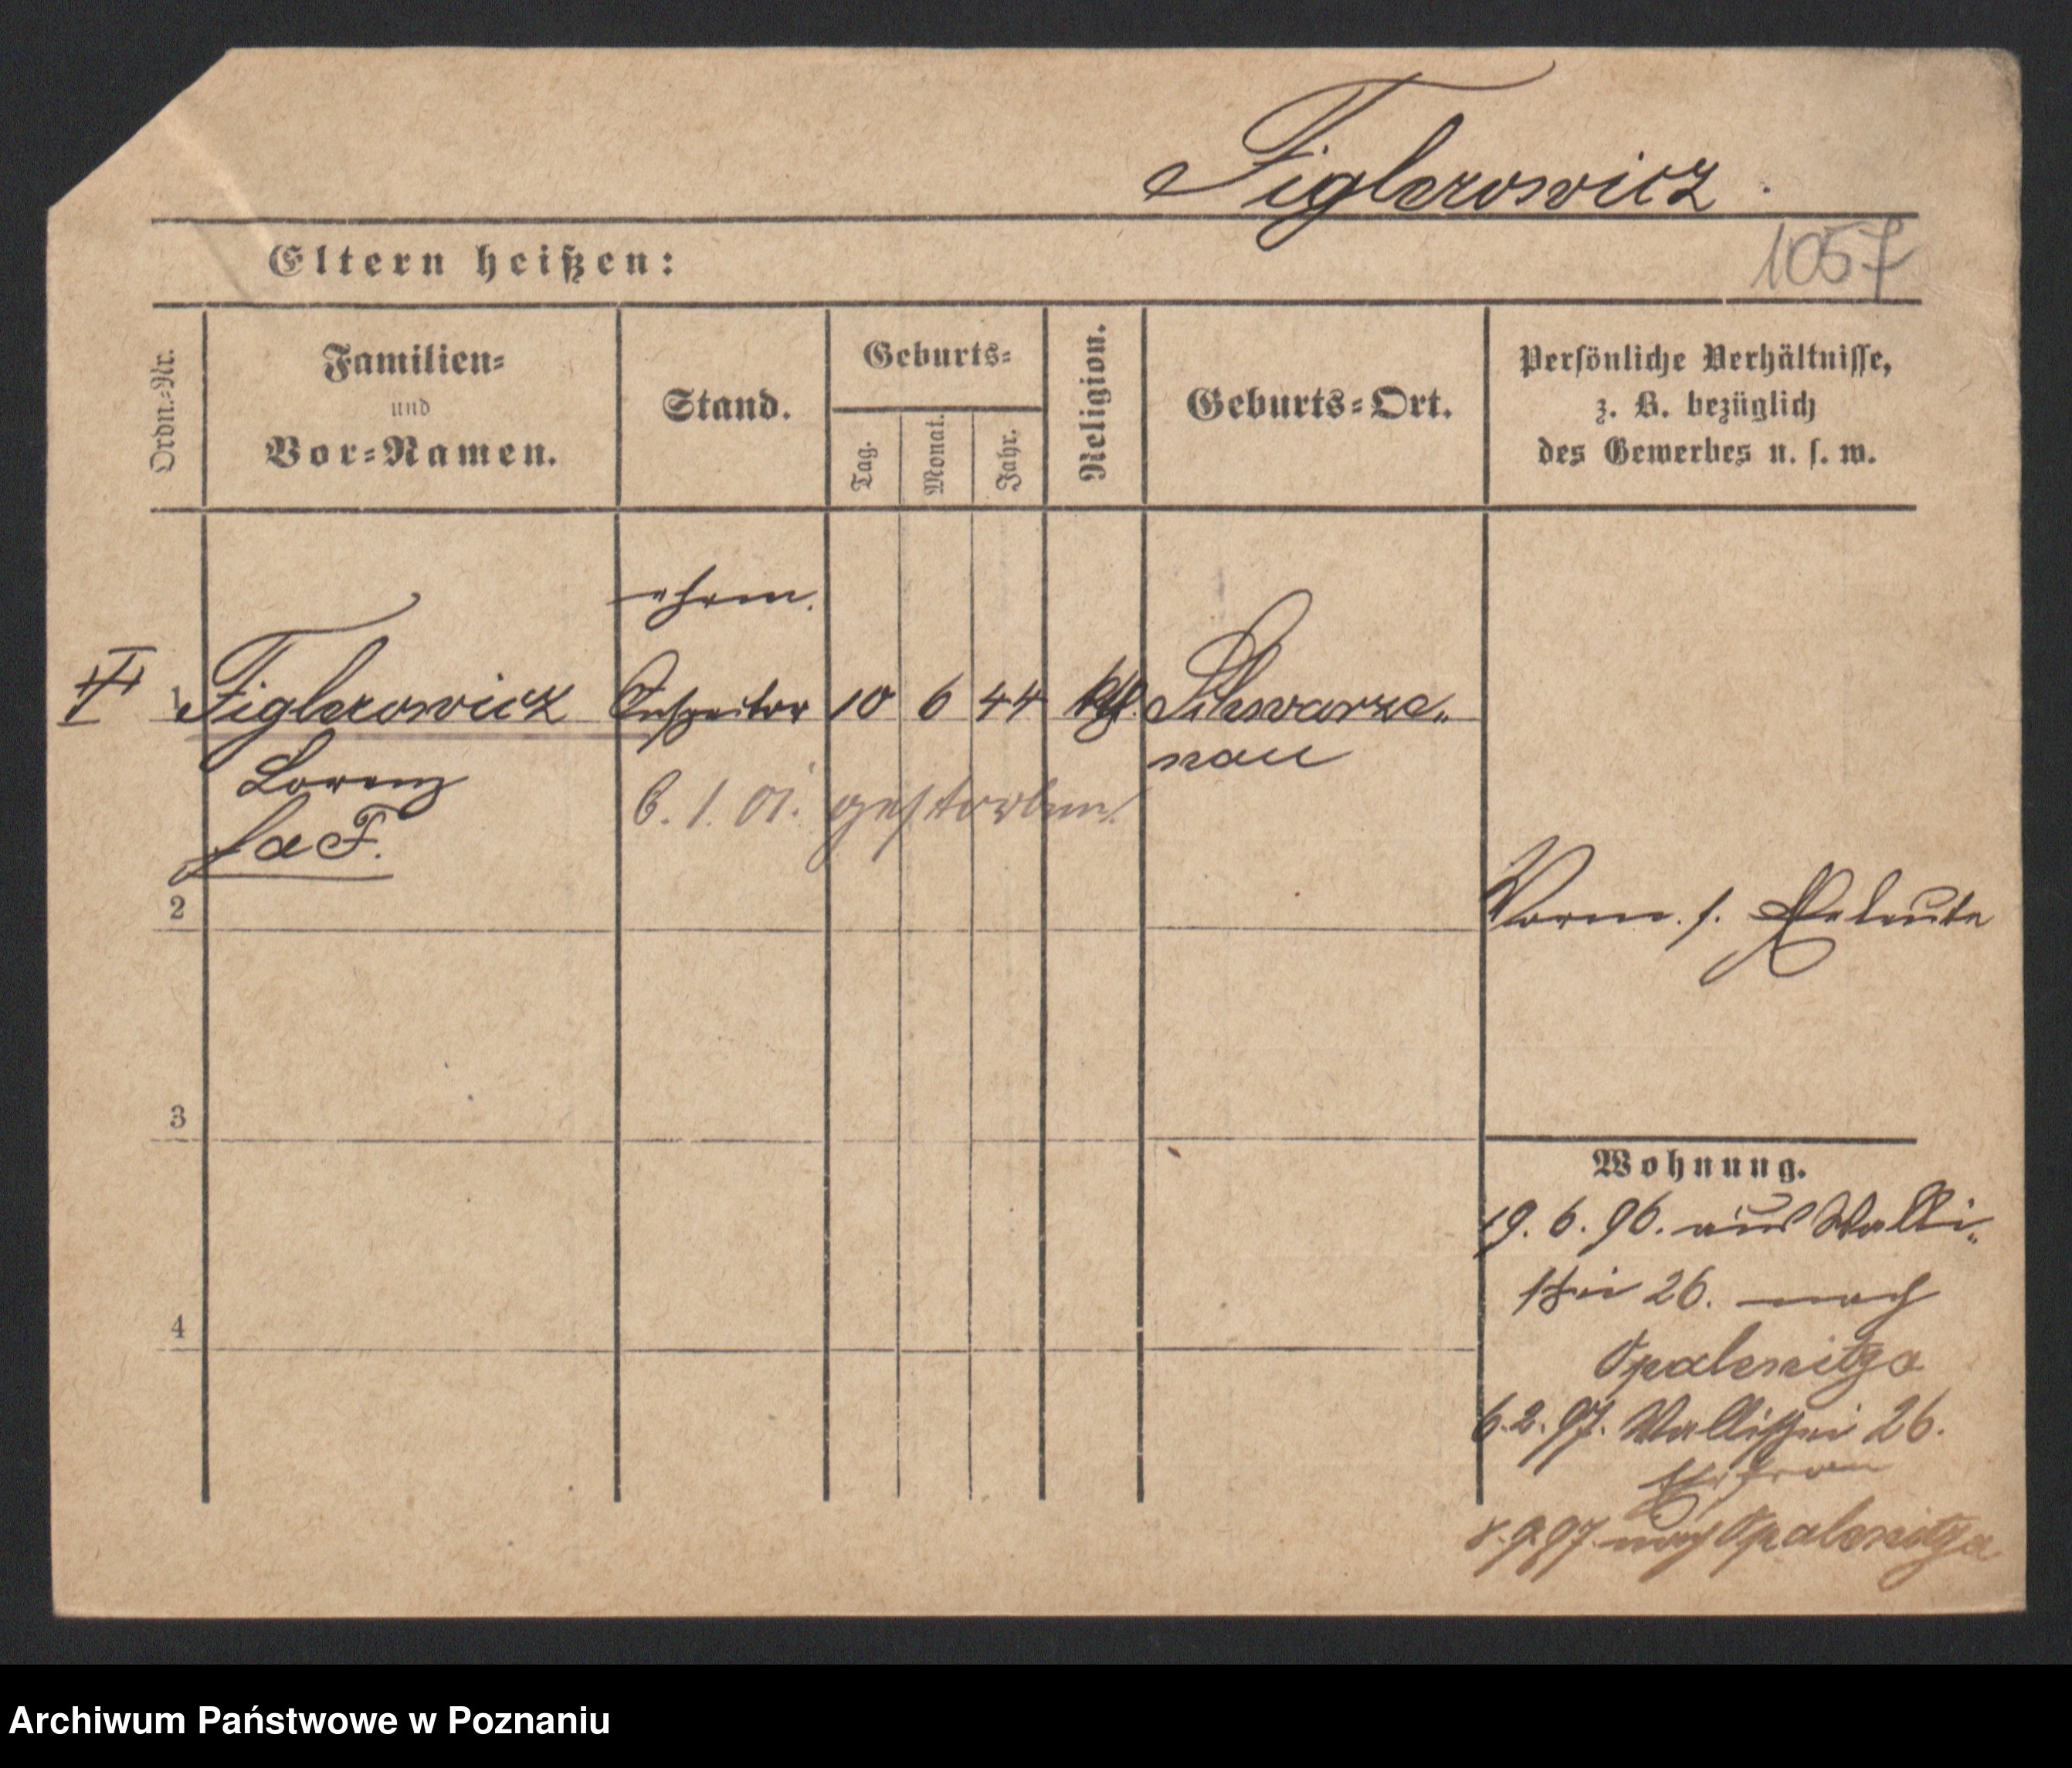 Figlerowicz.
1057
Eltern heißen:
Ordn.-Nr.
Familien-
und
Vor-Namen.
Stand.
Geburts-
Tag.
Monat.
Jahr.
Religion.
Geburts-Ort.
Persönliche Verhältnisse,
z. B. bezüglich
des Gewerbes u. s. w.
ehem.
1 Figlerowicz Inspektor 10 6 44 kth. Schwarze-
Lorenz nau
6. 1. 01. gestorben.
F.
2
Vorm. s. Eheleute
3
Wohnung.
19. 6. 96. aus Walli-
schei 26. nach
Opalenitza
4
6. 2. 97. Wallischei 26.
8. 9. 97. nach Opalenitza
Archiwum Państwowe w Poznaniu